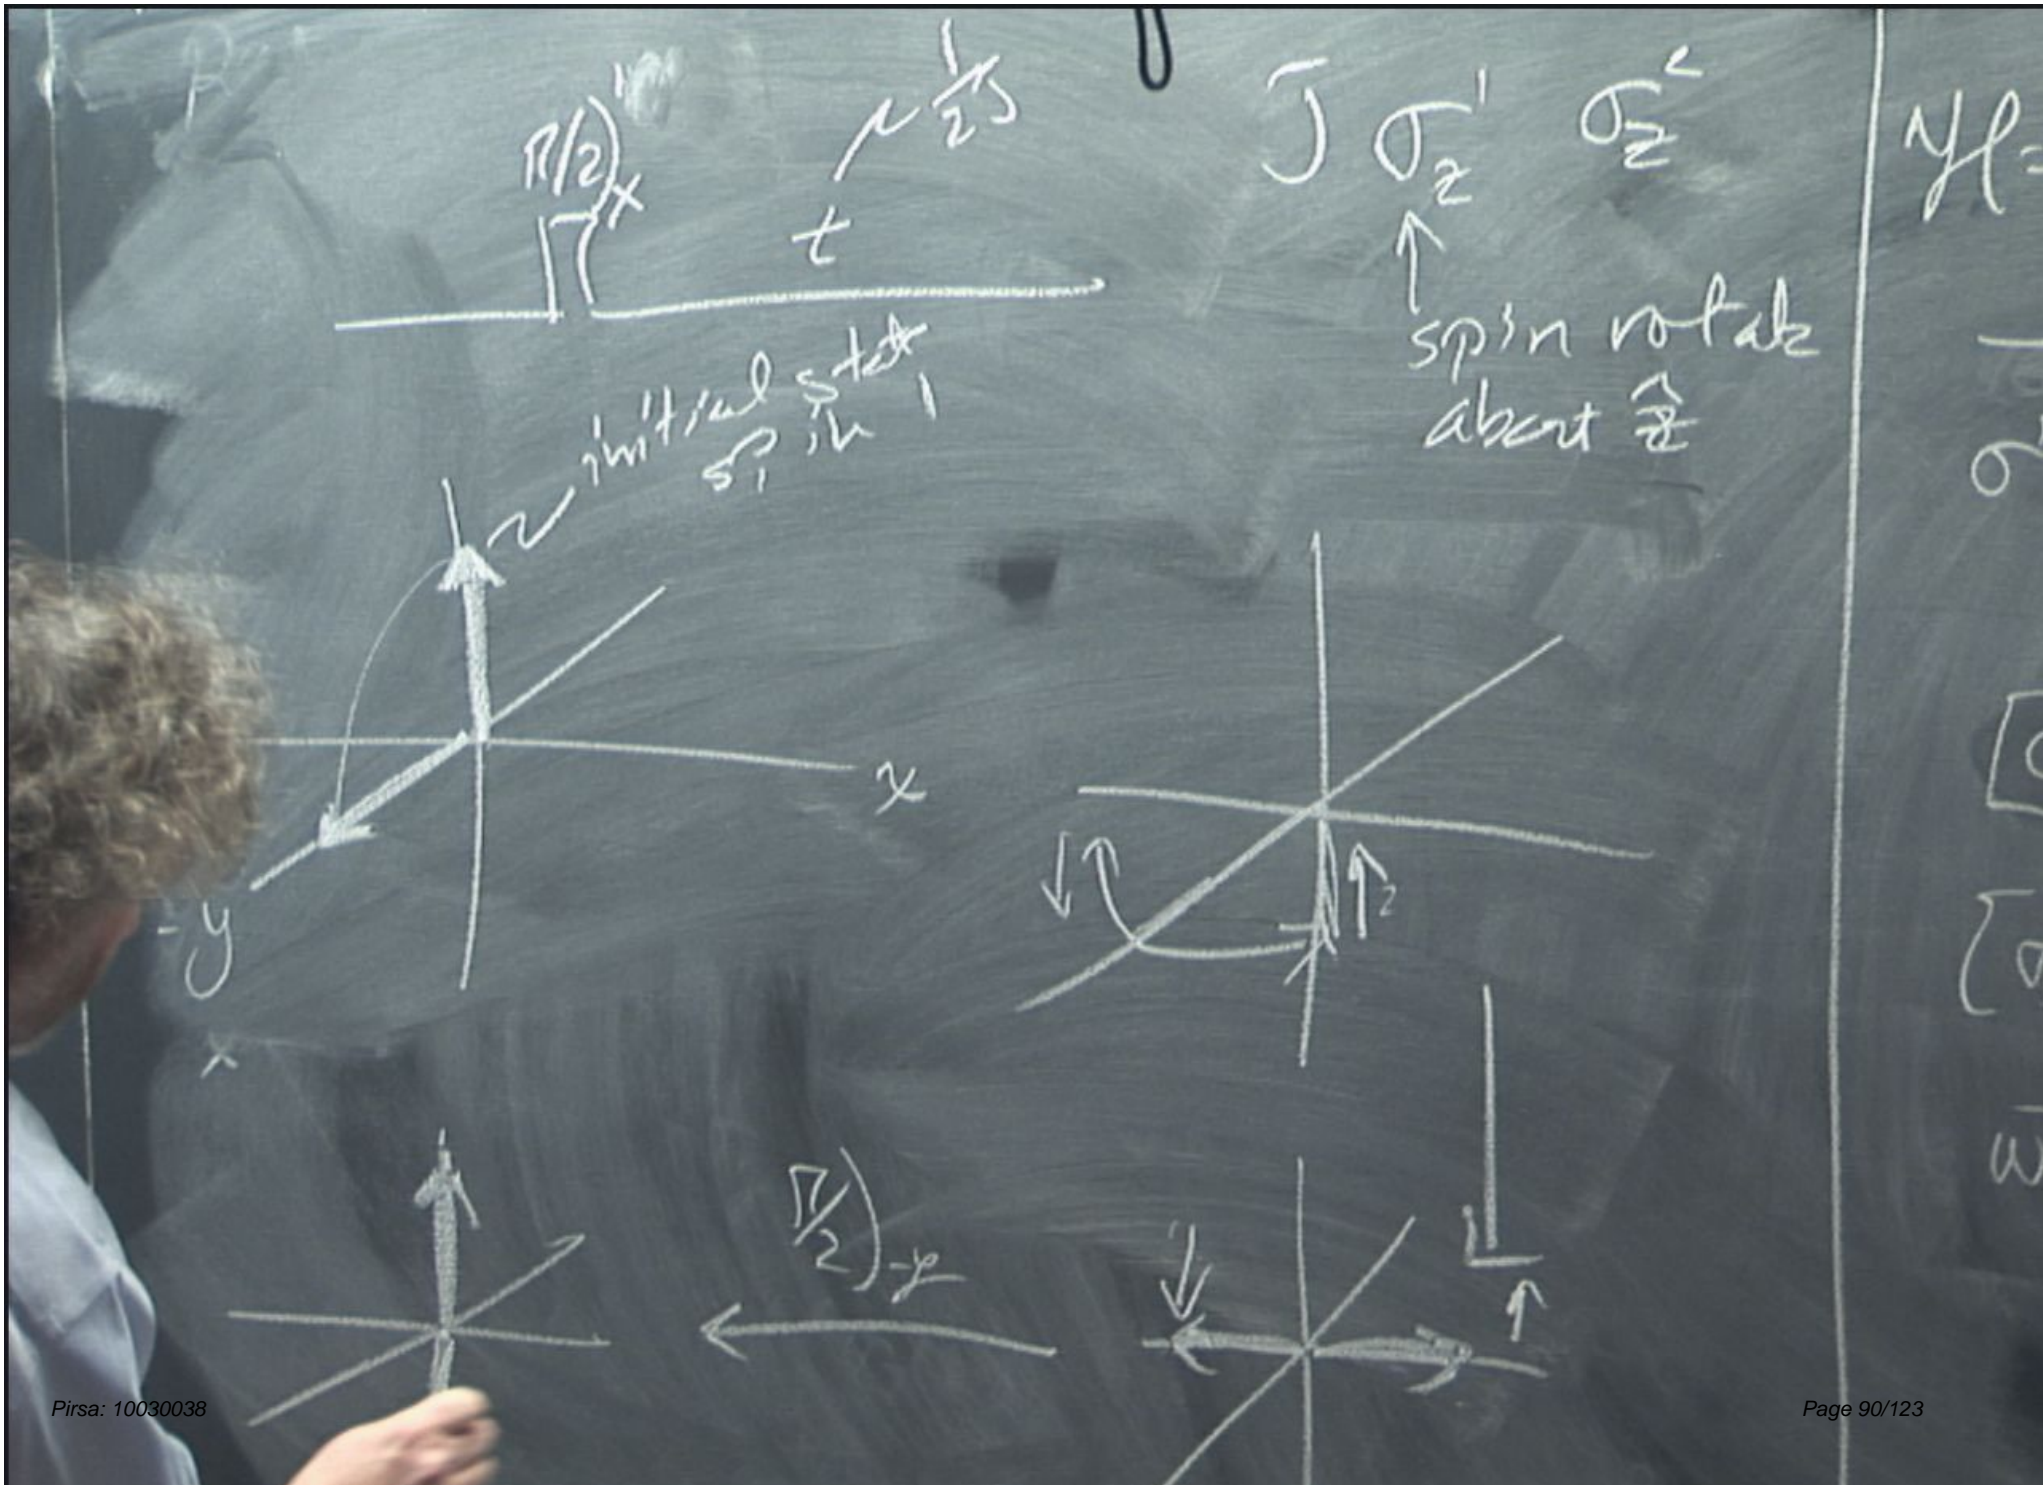 π/2)ₓ¹
~ 1/2J
t
J σ_z¹ σ_z²
↑
spin rotate
about ẑ
initial state
spin 1
x
-y
x
↓
↑2
π/2)_-y
↓
↑
ℋ=
σ
Pirsa: 10030038
Page 90/123